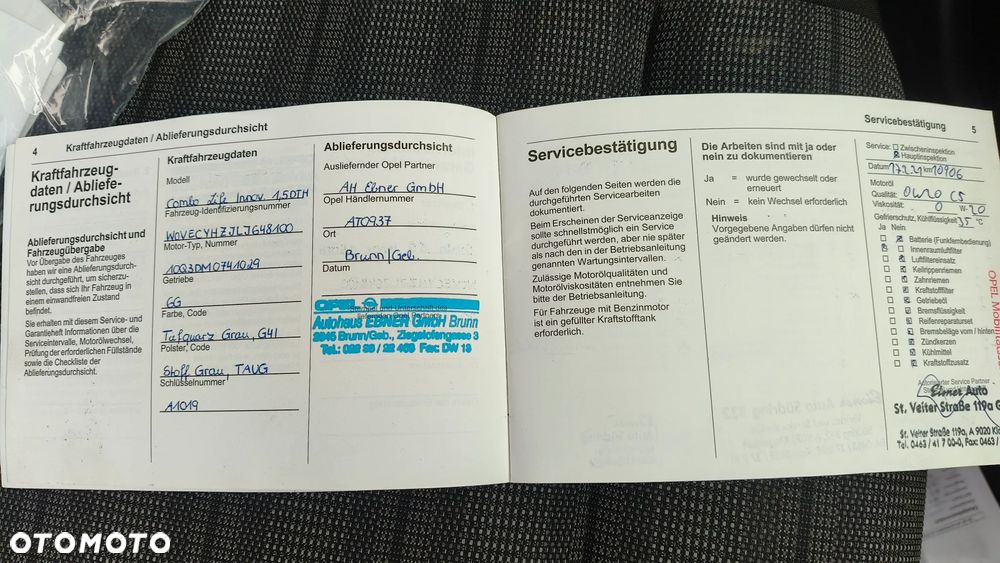 4 Kraftfahrzeugdaten / Ablieferungsdurchsicht
Kraftfahrzeug-
daten / Abliefe-
rungsdurchsicht
Ablieferungsdurchsicht und
Fahrzeugübergabe
Vor Übergabe des Fahrzeuges
haben wir eine Ablieferungsdurch-
sicht durchgeführt, um sicherzu-
stellen, dass sich Ihr Fahrzeug in
einem einwandfreien Zustand
befindet.
Sie erhalten mit diesem Service- und
Garantieheft Informationen über die
Serviceintervalle, Motorölwechsel,
Prüfung der erforderlichen Füllstände
sowie die Checkliste der
Ablieferungsdurchsicht.
Kraftfahrzeugdaten
Modell
Combo Life Innov. 1,5DTH
Fahrzeug-Identifizierungsnummer
W0VECYHZJLJ648100
Motor-Typ, Nummer
10Q3DM0741029
Getriebe
GG
Farbe, Code
Tafquarz Grau, G4I
Polster, Code
Stoff Grau, TAUG
Schlüsselnummer
A1019
Ablieferungsdurchsicht
Ausliefernder Opel Partner
AH Ebner GmbH
Opel Händlernummer
AT0937
Ort
Brunn/Geb.
Datum
OPEL
Stempel und Unterschrift des
liefernden Opel Partners
Autohaus EBNER GmbH Brunn
2345 Brunn/Geb., Ziegelofengasse 3
Tel.: 022 36 / 22 403 Fax: DW 13
Servicebestätigung 5
Servicebestätigung
Auf den folgenden Seiten werden die
durchgeführten Servicearbeiten
dokumentiert.
Beim Erscheinen der Serviceanzeige
sollte schnellstmöglich ein Service
durchgeführt werden, aber nie später
als nach den in der Betriebsanleitung
genannten Wartungsintervallen.
Zulässige Motorölqualitäten und
Motorölviskositäten entnehmen Sie
bitte der Betriebsanleitung.
Für Fahrzeuge mit Benzinmotor
ist ein gefüllter Kraftstofftank
erforderlich.
Die Arbeiten sind mit ja oder
nein zu dokumentieren
Ja = wurde gewechselt oder
erneuert
Nein = kein Wechsel erforderlich
Hinweis
Vorgegebene Angaben dürfen nicht
geändert werden.
Service: Zwischeninspektion
Hauptinspektion
Datum 17.2.21 km 10906
Motoröl
Qualität: 0W20 C5
Viskosität: 0 W- 20
Gefrierschutz, Kühlflüssigkeit 35 °C
Ja Nein
Batterie (Funkfernbedienung)
Innenraumluftfilter
Luftfiltereinsatz
Keilrippenriemen
Zahnriemen
Kraftstofffilter
Getriebeöl
Bremsflüssigkeit
Reifenreparaturset
Bremsbeläge vorn / hinten
Zündkerzen
Kühlmittel
Kraftstoffzusatz
Autorisierter Service Partner
Eisner Auto
St. Veiter Straße 119a G
St. Veiter Straße 119a, A 9020 Kl
Tel. 0463 / 41 7 00-0, Fax: 0463 /
OTOMOTO